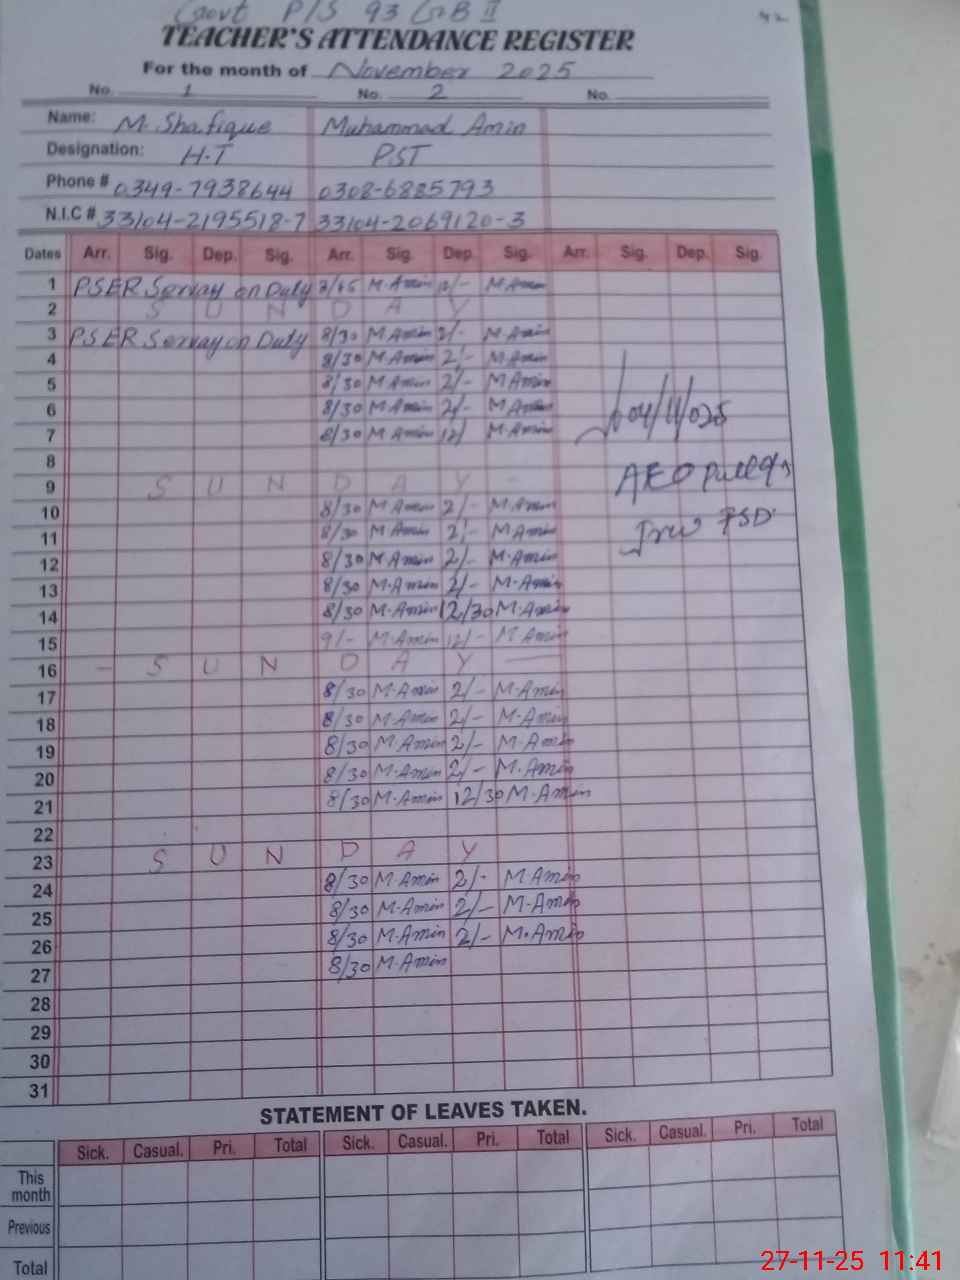 Govt P/S 93 GB II
TEACHER'S ATTENDANCE REGISTER
For the month of November 2025
No. 1 No. 2 No.
Name: M. Shafique Muhammad Amin
Designation: H.T PST
Phone # 0349-7938644 0308-6885793
N.I.C # 33104-2195518-7 33104-2069120-3
Dates Arr. Sig. Dep. Sig. Arr. Sig. Dep. Sig. Arr. Sig. Dep. Sig.
1 PSER Servay on Duty M Amin 12/- M Amin
2 S U N D A Y
3 PSER Servay on Duty 8/30 M Amin 2/- M Amin
4 8/30 M Amin 2/- M Amin
5 8/30 M Amin 2/- M Amin
6 8/30 M Amin 2/- M Amin
7 8/30 M Amin 12/ M Amin
04/11/025
8
9 S U N D A Y
AEO
10 8/30 M Amin 2/- M Amin
11 8/30 M Amin 2/- M Amin
FSD
12 8/30 M Amin 2/- M.Amin
13 8/30 M.Amin 2/- M.Amin
14 8/30 M.Amin 12/30 M.Amin
15 9/- M.Amin 12/- M Amin
16 - S U N D A Y
17 8/30 M.Amin 2/- M.Amin
18 8/30 M.Amin 2/- M.Amin
19 8/30 M.Amin 2/- M.Amin
20 8/30 M.Amin 2/- M.Amin
21 8/30 M.Amin 12/30 M.Amin
22
23 S U N D A Y
24 8/30 M.Amin 2/- M.Amin
25 8/30 M.Amin 2/- M.Amin
26 8/30 M.Amin 2/- M.Amin
27 8/30 M.Amin
28
29
30
31
STATEMENT OF LEAVES TAKEN.
Sick. Casual. Pri. Total Sick. Casual. Pri. Total Sick. Casual. Pri. Total
This month
Previous
Total
27-11-25 11:41